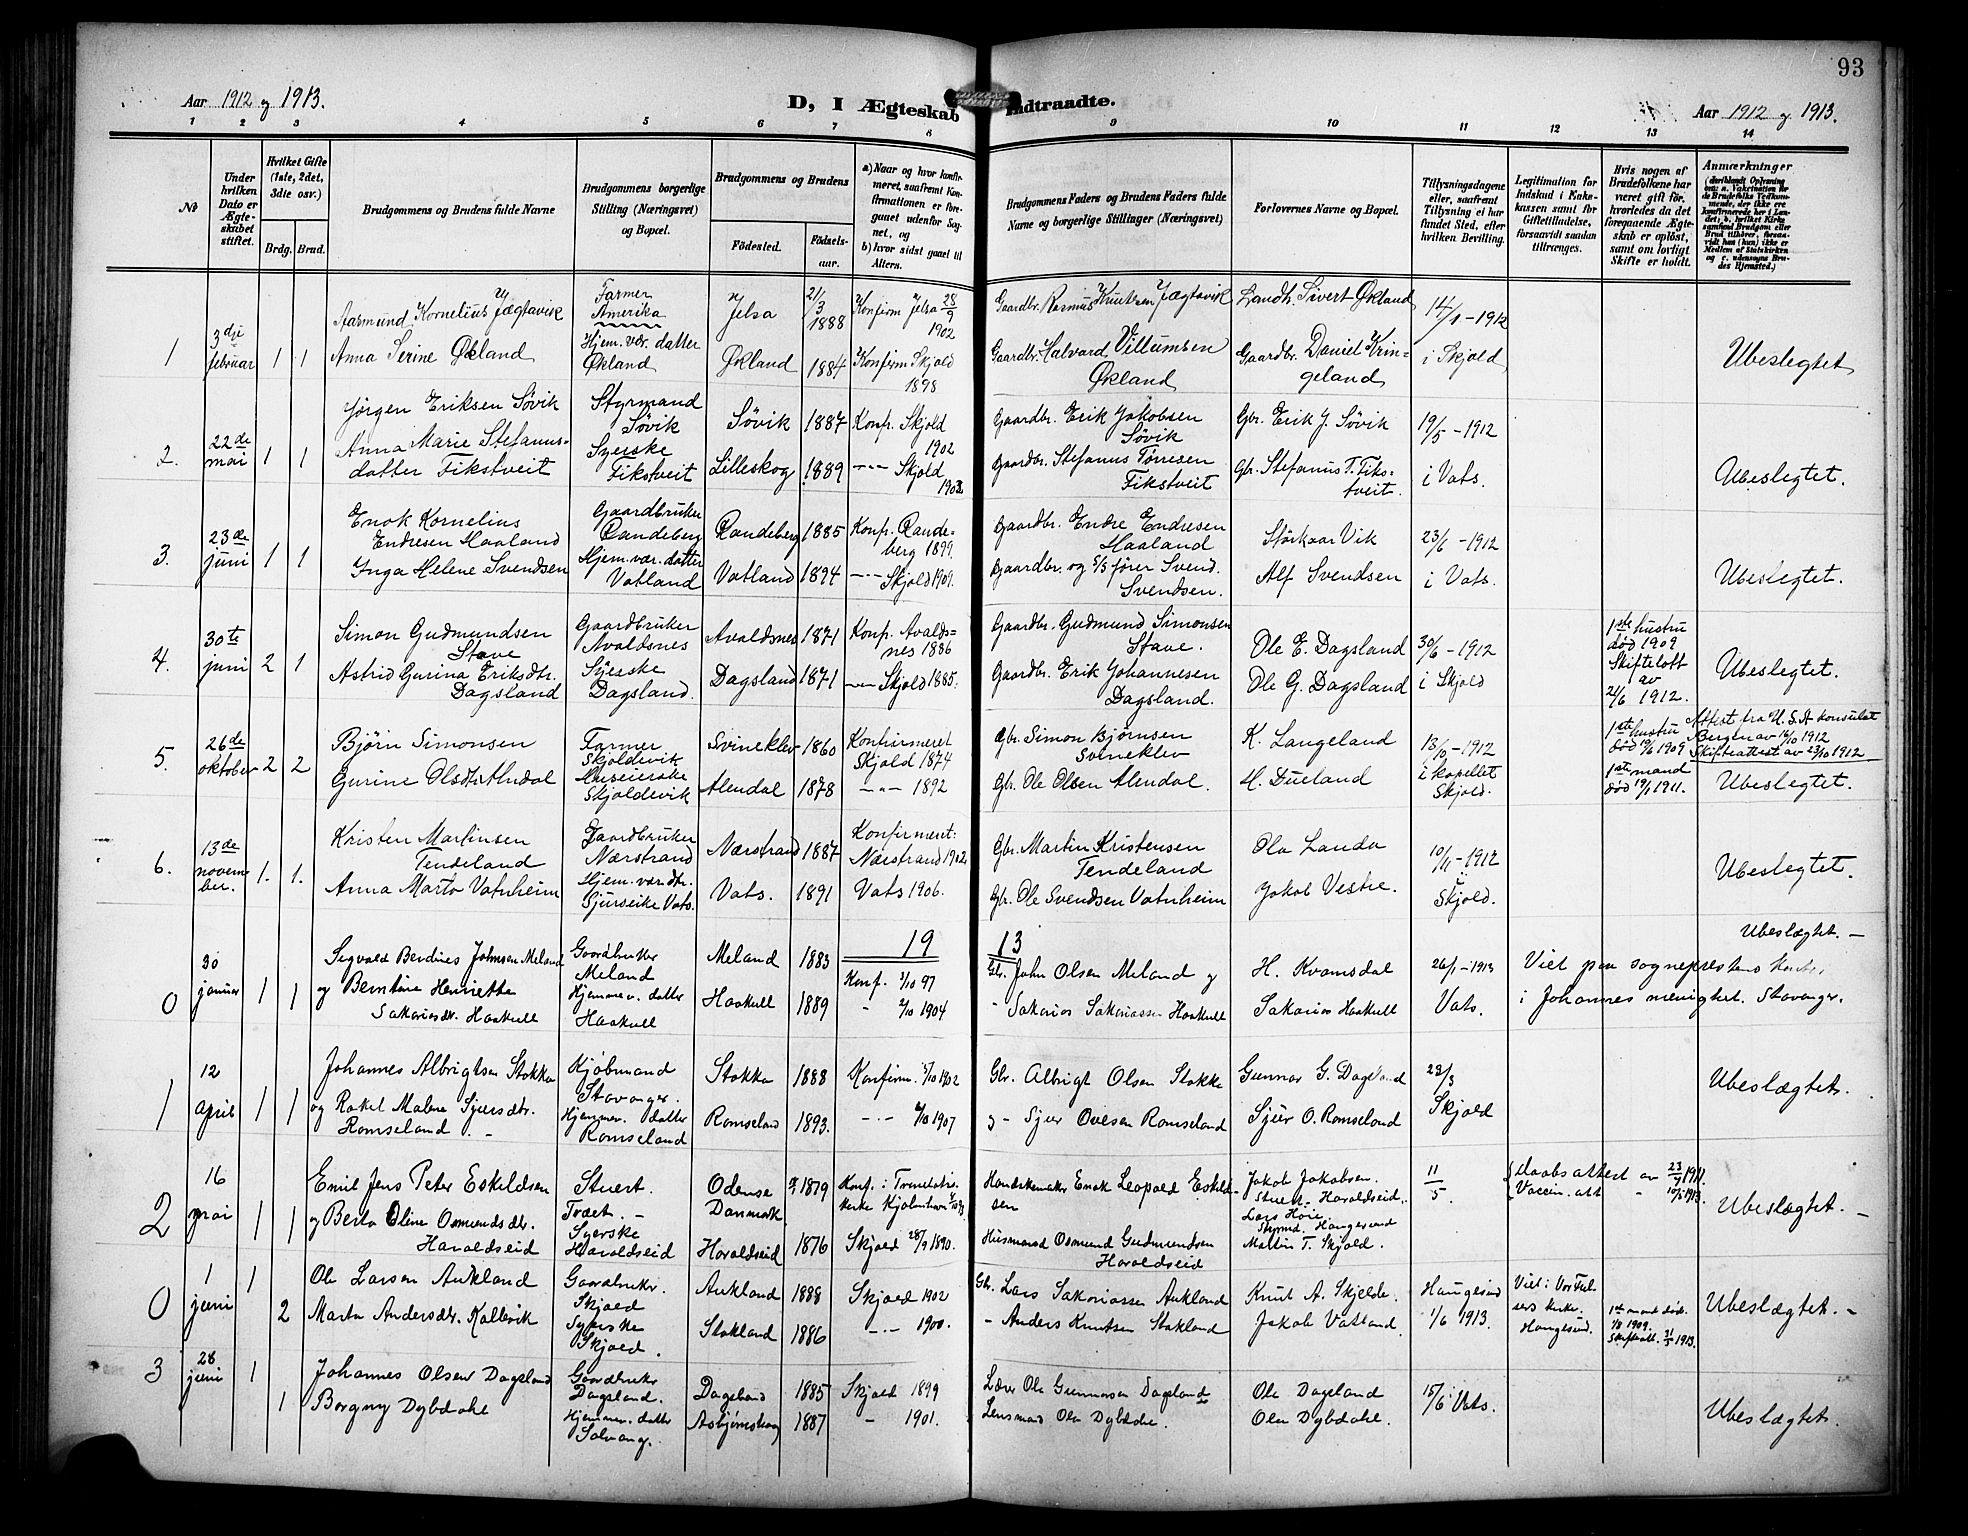 93
Aar 1912 og 1913.
D, I Ægteskab Indtraadte.
Aar 1912 og 1913.
1 2 3 4 5 6 7 8 9 10 11 12 13 14
No
Under hvilken Dato er Ægteskabet stiftet.
Hvilket Gifte (1ste, 2det, 3die osv.)
Brdg. Brud.
Brudgommens og Brudens fulde Navne
Brudgommens borgerlige Stilling (Næringsvei) og Bopæl.
Brudgommens og Brudens
Födested.
Födselsaar.
a) Naar og hvor konfirmeret, saafremt Konfirmationen er foregaaet udenfor Sognet, og
b) hvor sidst gaaet til Alters.
Brudgommens Faders og Brudens Faders fulde Navne og borgerlige Stillinger (Næringsvei)
Forlovernes Navne og Bopæl.
Tillysningsdagene eller, saafremt Tillysning ei har fundet Sted, efter hvilken Bevilling.
Legitimation for Indskud i Enkekassen samt for Giftetilladelse, forsaavidt saadan tiltrænges.
Hvis nogen af Brudefolkene har været gift för, hvorledes da det foregaaende Ægteskab er oplöst, samt om lovligt Skifte er holdt.
Anmærkninger
1
3dje februar
1 1
Aasmund Kornelius Jægtavik
Farmer Amerika
Jelsa
21/3 1888
Konfirm Jelsa 28/9 1902
Gaardbr. Rasmus Knutsen Jægtavik
Landh. Sivert Økland
14/1 - 1912
Anna Serine Økland
Hjem. vær. datter Økland
Økland
1884
Konfirm Skjold 1898
Gaardbr. Halvard Villumsen Økland
Gaardbr. Daniel Kringeland
i Skjold
Ubeslegtet
2.
22de mai
1 1
Jörgen Eriksen Sövik
Styrmand Sövik
Sövik
1887
Konf. Skjold 1902
Gaardbr. Erik Jakobsen Sövik
Gbr. Erik J. Sövik
19/5 - 1912
Anna Marie Stefanusdatter Fikstveit
Syerske Fikstveit
Lilleskog
1889
-"- Skjold
Gaardbr. Stefanus Tørresen Fikstveit
Gbr. Stefanus T. Fikstveit.
i Vats.
Ubeslegtet.
3.
23de juni
1 1
Enok Kornelius Endresen Haaland
Gaardbruker Randeberg
Randeberg
1885
Konf. Randeberg 1899.
Gaardbr. Endre Endresen Haaland
Störkaar Vik
23/6 - 1912
Inga Helene Svendsen
Hjem. vær. datter Vatland
Vatland
1894
-"- Skjold 1909.
Gaardbr. og S/S förer Svend. Svendsen.
Alf Svendsen
i Vats.
Ubeslegtet.
4.
30te juni
2 1
Simon Gudmundsen Stave
Gaardbruker Avaldsnes
Avaldsnes
1871
Konf. Avaldsnes 1886
Gaardbr. Gudmund Simonsen Stave.
Ole E. Dagsland
30/6 - 1912
1ste hustru död 1909
Skifteatt av 21/6 1912.
Astrid Gurina Eriksdtr. Dagsland
Syerske Dagsland.
Dagsland
1871
-"- Skjold 1885.
Gaardbr. Erik Johannesen Dagsland.
Ole G. Dagsland
i Skjold
Ubeslegtet.
5.
26de oktober
2 2
Björn Simonsen
Farmer Skjoldevik
Svineklev
1860
Konfirmeret Skjold 1874
Gbr. Simon Bjørnsen Svineklev
K. Langeland
13/10 - 1912
1ste hustru
Attest fra U.S.A konsulat Bergen av 16/10 1912
Skifteattest av 23/10 1912
Gurine Olsdtr. Alendal
Huseierske Skjoldevik
Alendal
1878
-"- 1892
Gbr. Ole Olsen Alendal
H. Dueland
i kapellet Skjold.
1ste mand död 19/1 1911.
Ubeslegtet.
6.
13de november.
1. 1.
Kristen Martinsen Tendeland
Gaardbruker Nærstrand
Nærstrand
1887
Konfirmeret: Nærstrand 1902.
Gbr. Martin Kristensen Tendeland
Ola Landa
10/11 - 1912
Anna Marta Vatnheim
Hjem. vær. dtr. Gjurseike Vats.
Vats.
1891
Vats 1906.
Gbr. Ole Svendsen Vatnheim
Jakob Vestre.
i Skjold.
Ubeslegtet.
19 13
0
30 januar
1 1
Segvald Berdines Johnsen Meland
Gaardbruker Meland
Meland
1883
Konf. 3/10 97
Gbr. John Olsen Meland og
H. Kvamsdal
26/1 - 1913
Viet paa sogneprestens kontor,
Ubeslægtet. -
og Berntine Henriette Sakariasdr. Haakull
Hjemmev. datter Haakull
Haakull
1889
- 2/10 1904
- Sakarias Sakariassen Haakull
Sakarias Haakull
Vats.
i Johannes menighet. Stavanger.
1
12 april
1 1
Johannes Albrigtsen Stokka
Kjöbmand Stavanger.
Stokka
1888
Konfirm. 5/10 1902
Gbr. Albrigt Olsen Stokke
Gunnar G. Dagsland
23/3
og Rakel Malene Sjursdtr. Romseland. -
Hjemmev. datter Romseland
Romseland
1893.
-"- 6/10 1907
og - Sjur Ovesen Romseland
Sjur O. Romseland
Skjold
Ubeslægtet.
2
16 mai
1 1
Emil Jens Peter Eskildsen
Stuert. Traet. -
Odense Danmark
1879
Konf. i Trinitatiskirke Kjöbenhavn
Handskemaker Emek Leopold Eskildsen
Jakob Jakobsen. Stuert - Haraldseid.
11/5
Daabsattest av 23/4 1911.
Vaccin. att " 10/5 1913.
og Berta Oline Osmundsdtr. Haraldseid
Syerske Haraldseid
Haraldseid
1876
Skjold 28/9 1890.
Husmand Osmund Gudmundsen Haraldseid
Lars Höie Styrmd. Haugesund
Martin T. Skjold.
Ubeslægtet. -
0
1 juni
1
Ole Larsen Aukland
Gaardbruker Skjold
Aukland
1888
Skjold 1902
Gbr. Lars Sakariassen Aukland
Knut A. Skjelde.
Haugesund
Viet i Vor Frelsers kirke. Haugesund.
2
Marta Andersdtr. Kallevik
Syerske Skjold.
Stakland
1886
-"- 1900.
- Anders Knutsen Stakland
Jakob Vatland
1/6 1913.
1st mand död. 1909. Skifteatt. 31/5 1913.
Ubeslægtet. -
3
28 juni
1
Johannes Olsen Dagsland
Gaardbruker Dagsland.
Dagsland
1885
Skjold 1899
Lærer Ole Gunnarsen Dagsland
Ole Dagsland
15/6 Vats.
1
Borgny Dybdahl
Hjemmev. datter Solvang.
Asbjørnskog
1887
- 1901.
Lensmand Ole Dybdahl.
Ole Dybdahl.
Ubeslægtet.